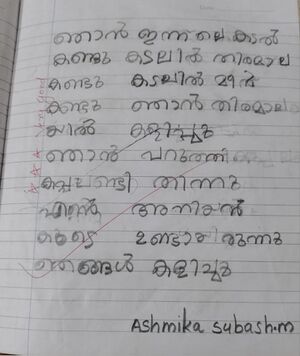 ഞാൻ ഇന്നലെ കടൽ
കണ്ടു കടലിൽ തിരമാല
കണ്ടു കടലിൽ മീൻ
കണ്ടു ഞാൻ തിരമാല
യിൽ കളിച്ചു
ഞാൻ പറുത്തി
കപ്പലണ്ടി തിന്നു
എന്റെ അനിയൻ
കൂടെ ഉണ്ടായിരുന്നു
ഞങ്ങൾ കളിച്ചു
Very Good
Ashmika Subash.m